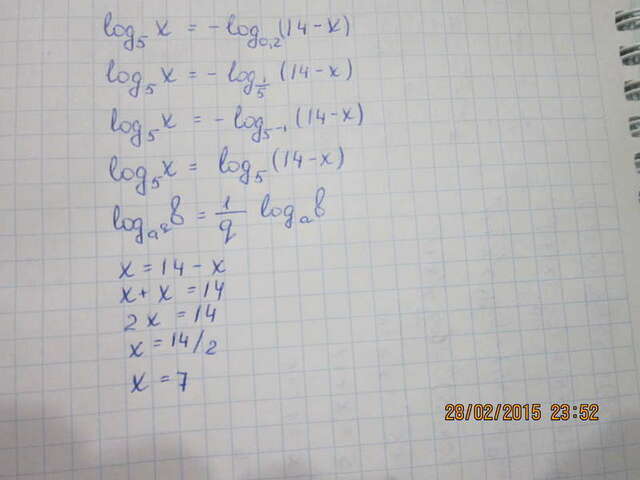 log₅ x = -log₀,₂(14-x)
log₅ x = -log₁/₅ (14-x)
log₅ x = -log₅₋₁ (14-x)
log₅ x = log₅ (14-x)
logₐq b = 1/q logₐ b
x = 14 - x
x + x = 14
2x = 14
x = 14/2
x = 7
28/02/2015 23:52